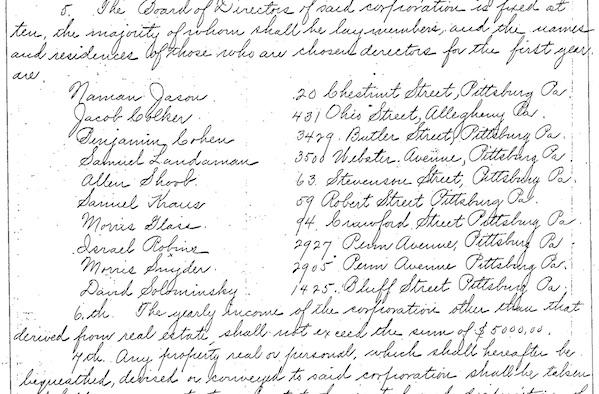 5. The Board of Directors of said corporation is fixed at
ten, the majority of whom shall be lay members, and the names
and residences of those who are chosen derectors for the first year
are
Naman Jason 20 Chestnut Street, Pittsburg Pa.
Jacob Colker 431 Ohio Street, Allegheny Pa.
Benjamin Cohen 3429 Butler Street, Pittsburg Pa.
Samuel Landaman 3500 Webster Avenue, Pittsburg Pa.
Allen Shoob 63 Stevenson Street, Pittsburg Pa.
Samuel Kraus 59 Robert Street Pittsburg Pa.
Morris Glass 94 Crawford Street Pittsburg Pa.
Israel Robins 2927 Penn Avenue, Pittsburg Pa.
Morris Snyder 2905 Penn Avenue Pittsburg Pa.
David Solominsky 1425 Bluff Street Pittsburg Pa,
6.th. The yearly income of the corporation other than that
derived from real estate, shall not exceed the sum of $5000.00.
7th. Any property real or personal, which shall hereafter be
bequeathed, devised or conveyed to said corporation shall be taken